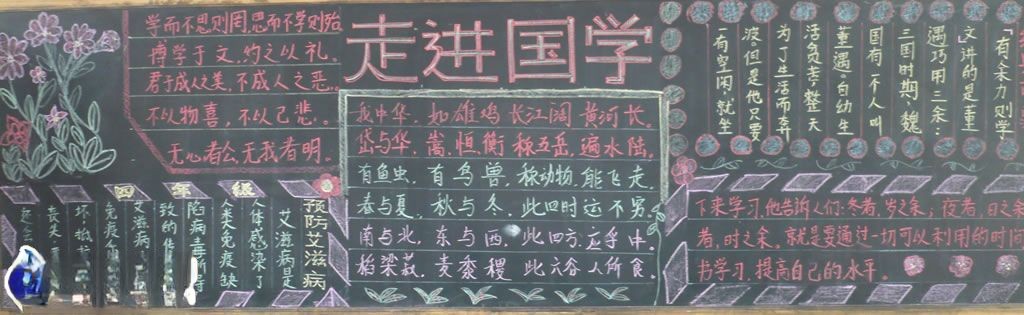 走进国学
学而不思则罔,思而不学则殆
博学于文,约之以礼。
君子成人之美,不成人之恶。
不以物喜,不以己悲。
无心者公,无我者明。
四年级
预防艾滋病
艾滋病是
人体感染了
人类免疫缺
陷病毒所
致的传
艾滋病
免疫
我中华,如雄鸡 长江阔 黄河长。
岱与华,嵩,恒,衡 称五岳,遍水陆。
有鱼虫,有鸟兽,称动物,能飞走,
春与夏,秋与冬,此四时 运不穷。
南与北,东与西,此四方,应乎中。
稻粱菽,麦黍稷 此六谷 人所食。
「有余力则学
文」讲的是董
遇巧用三余:
三国时期,魏
国有一个人叫
董遇,自幼生
活贫苦,整天
为了生活而奔
波。但是他只要
一有空闲,就坐
下来学习,他告诉人们:冬者,岁之余;夜者,日之余
者,时之余。就是要通过一切可以利用的时间
书学习,提高自己的水平。